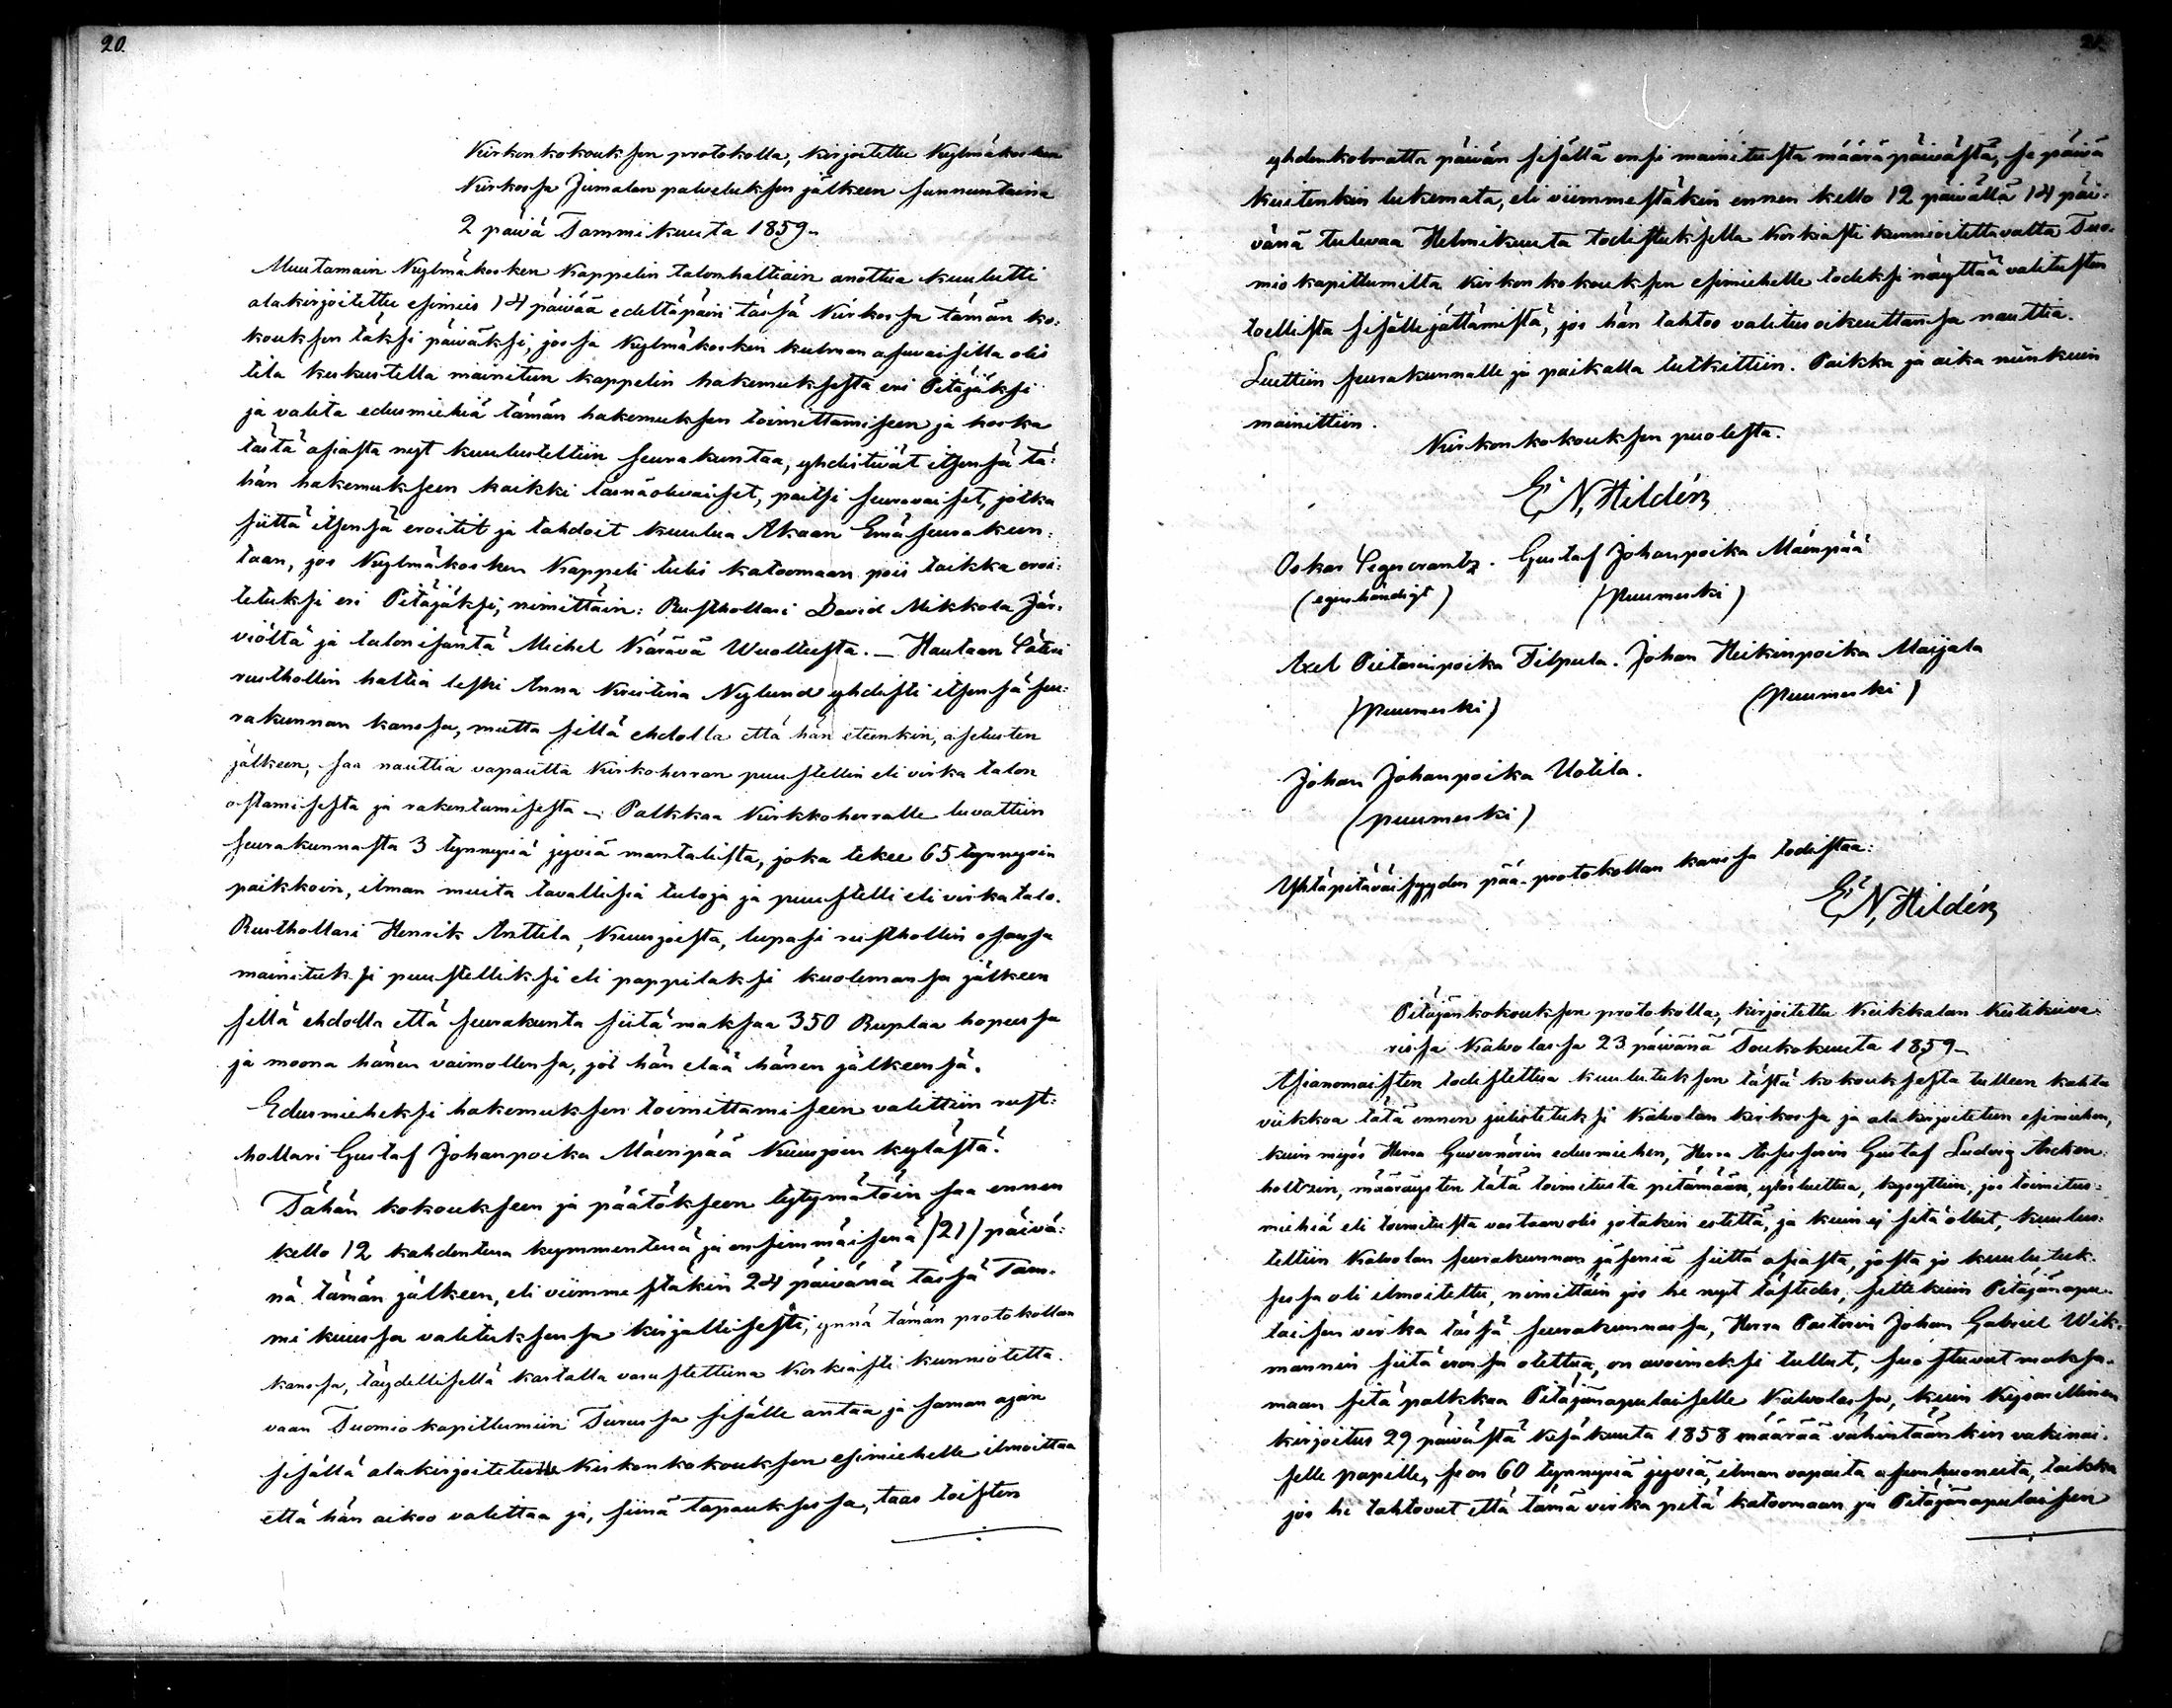 20.
Kirkonkokouksen protokolla, kirjoitettu Kylmäkosken
Kirkossa Jumalan palveluksen jälkeen sunnuntaina
2 päivä Tammikuuta 1859.
Muutamain Kylmäkosken Kappelin talonhaltiain anottua kuulutti
alakirjoitettu esimies 14 päivää edeltäpäin tässä Kirkossa tämän ko-
kouksen täksi päiväksi, jossa Kylmäkosken kulman asuvaisilla olis
tila keskustella mainitun kappelin hakemuksesta eri Pitäjäksi
ja valita edusmiehiä tämän hakemuksen toimittamiseen ja koska
tästä asiasta nyt kuulusteltiin seurakuntaa, yhdistivät itsensä tä-
hän hakemukseen kaikki läsnäolevaiset, paitsi seuravaiset, jotka
siittä itsensä eroitit ja tahdoit kuulua Akaan Emäseurakun-
taan, jos Kylmäkosken Kappeli tulis katoomaan pois taikka eroi-
tetuksi eri Pitäjäksi, nimittäin: Rusthollari David Mikkola Jär-
viöltä ja talonisäntä Michel Kärävä Wuollusta. — Hautaan Säteri
rusthollin haltia leski Anna Kristina Nylund yhdisti itsensä seu-
rakunnan kanssa, mutta sillä ehdolla että hän eteenkin, asetusten
jälkeen, saa nauttia vapautta Kirkoherran puustellin eli virka talon
ostamisesta ja rakentamisesta — Palkkaa Kirkkoherralle luvattiin
seurakunnasta 3 tynnyriä jyviä manttalista, joka tekee 65 tynnyrin
paikkoin, ilman muita tavallisia tuloja ja puustelli eli virkatalo.
Rusthollari Henrik Anttila, Kuurjoesta, lupasi rusthollin osansa
mainituksi puustelliksi eli pappilaksi kuolemansa jälkeen
sillä ehdolla että seurakunta siitä maksaa 350 Ruplaa hopeassa
ja moona hänen vaimollensa, jos hän elää hänen jälkeensä.
Edusmieheksi hakemuksen toimittamiseen valittiin rust-
hollari Gustaf Johanpoika Mäenpää Kuurjoen kylästä.
Tähän kokoukseen ja päätökseen tytymätöin saa ennen
kello 12 kahdentena kymmentenä ja ensimmäisenä (21) päivä-
nä tämän jälkeen, eli viimmestäkin 24 päivänä tässä Tam-
mikuussa valituksensa kirjallisesti, ynnä tämän protokollan
kanssa, täydellisellä kartalla varustettuna Korkiasti kunnioitetta-
vaan Tuomiokapitlumiin Turussa sisälle antaa ja saman ajan
sisällä alakirjoitetulle Kirkonkokouksen esimiehelle ilmoittaa
että hän aikoo valittaa ja, siinä tapauksessa, taas toisten
21.
yhdenkolmatta päivän sisällä ensi mainitusta määräpäivästä, se päivä
kuitenkin lukemata, eli viimmestäkin ennen kello 12 päivällä 14 päi-
vänä tulevaa Helmikuuta todistuksella Korkiasti kunnioitettavalta Tuo-
miokapitlumilta Kirkonkokouksen esimiehelle todeksi näyttää valitusten
toellista sisällejättämistä, jos hän tahtoo valitusoikeuttansa nauttia.
Luettiin seurakunnalle ja paikalla tutkittiin. Paikka ja aika niinkuin
mainittiin.
Kirkonkokouksen puolesta.
E. N. Hildén
Oskar Segercrantz. Gustaf Johanpoika Mäenpää
(egenhändigt) (puumerki)
Axel Pietarinpoika Tilpula. Johan Heikinpoika Maijala
(puumerki) (puumerki)
Johan Johanpoika Uotila.
(puumerki)
Yhtäpitäväisyyden pää-protokollan kanssa todistaa:
E. N. Hildén
Pitäjänkokouksen protokolla, kirjoitettu Keikkalan Kestikieva-
rissa Kalvolassa 23 päivänä Toukokuuta 1859.
Asianomaisten todistettua kuulutuksen tästä kokouksesta tulleen kahta
viikkoa tätä ennen julistetuksi Kalvolan kirkossa ja alakirjoitetun esimiehen,
kuin myös Herra Guvernörin edusmiehen, Herra Assessorin Gustaf Ludvig Ascken-
holtzin, määräysten tätä toimitusta pitämään, ylösluettua, kysyttiin, jos toimitus-
miehiä eli toimitusta vastaan olis jotakin estettä, ja kuin ei sitä ollut, kuulus-
teltiin Kalvolan seurakunnan jäseniä siittä asiasta, josta jo kuulutuk-
sessa oli ilmoitettu, nimittäin jos he nyt tästedes, sittekuin Pitäjänapu-
laisen virka tässä seurakunnassa, Herra Pastorin Johan Gabriel Wik-
mannin siitä eronsa otettua, on avoimeksi tullut, suostuvat maksa-
maan sitä palkkaa Pitäjänapulaiselle Kalvolassa, kuin Keisarillinen
kirjoitus 29 päivästä Kesäkuuta 1858 määrää vähintäänkin vakinai-
selle papille, se on 60 tynnyriä jyviä, ilman vapaita asuinhuoneita, taikka
jos he tahtovat että tämä virka pitä katoomaan ja Pitäjänapulaisen